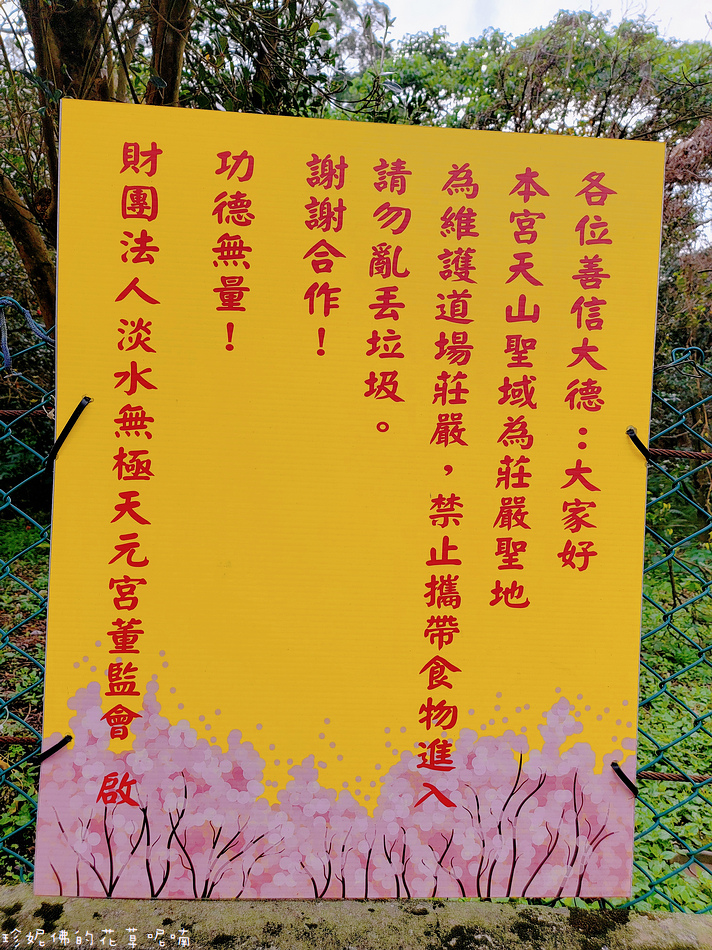 各位善信大德：大家好
本宮天山聖域為莊嚴聖地
為維護道場莊嚴，禁止攜帶食物進入
請勿亂丟垃圾。
謝謝合作！
功德無量！
財團法人淡水無極天元宮董監會 啟
珍妮佛的花草呢喃